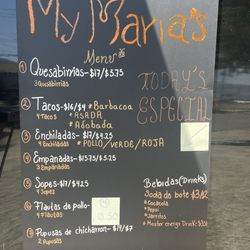 My Maria's
Menu
TODAY'S
ESPECIAL
① Quesabirrias-$17/$5.75
3 Quesabirrias
② Tacos-$16/$4 *Barbacoa
4 Tacos *ASADA
*Adobada
③ Enchiladas-$17/$4.25
4 Enchiladas *POLLO/VERDE/ROJA
④ Empanadas-$15.75/$5.25
3 Empanadas
⑤ Sopes-$17/$4.25
4 Sopes
⑥ Flautas de pollo-
4 Flautas
⑦ Pupusas de chicharron-$14/$7
2 Pupusas
Bebidas(Drinks)
Soda de bote $3/12
*Cocacola
*Pepsi
*Jarritos
*Monster energy Drink-